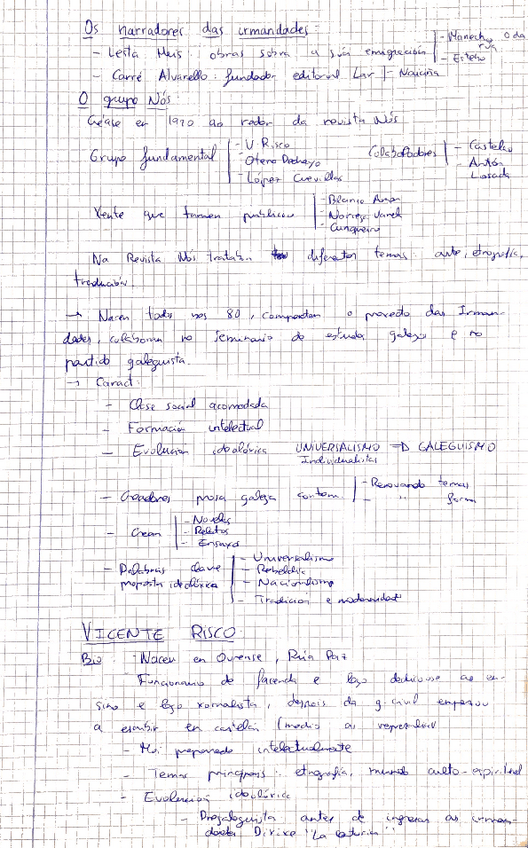 Os narradores das irmandades:
- Lesta Meis: obras sobre a súa emigración | - Manecho o da rúa
- Esteño
- Carré Alvarello: fundador editorial Lar | - Nacuiña
O grupo Nós
Créase en 1920 ao redor da revista Nós
Grupo fundamental | - V. Risco
- Otero Pedrayo
- López Cuevillas
Colaboradores | - Castelao
- Antón Losada
Xente que forman público | - Blanco Amor
- Cunqueiro
Na Revista Nós tratan diferentes temas: arte, etnografía,
traducción.
→ Nacen todos nos 80, comparten o proxecto das Irman-
dades, colaboran no Seminario de estudos galegos e no
partido galeguista.
→ Caract:
- Clase social acomodada
- Formación intelectual
- Evolución ideolóxica UNIVERSALISMO => GALEGUISMO
Individualistas
- Creadores prosa galega contem. | - Renovando temas
- " forma
- Crean | - Novelas
- Relatos
- Ensaios
- Palabras clave proposta ideolóxica | - Universalismo
- Rebeldía
- Nacionalismo
- Tradición e modernidade
VICENTE RISCO
Bio: - Naceu en Ourense, Rúa Paz
- Funcionario de facenda e logo dedicouse ao en-
sino e logo xornalista, despois da g. civil empezou
a escribir en castelán (medio ás represalias)
- Moi preparado intelectualmente
- Temas principais: etnografía, mundo culto-espiritual
- Evolución ideolóxica
- Pregaleguista antes de ingresar as irman-
dades Dirixe "La Centuria"